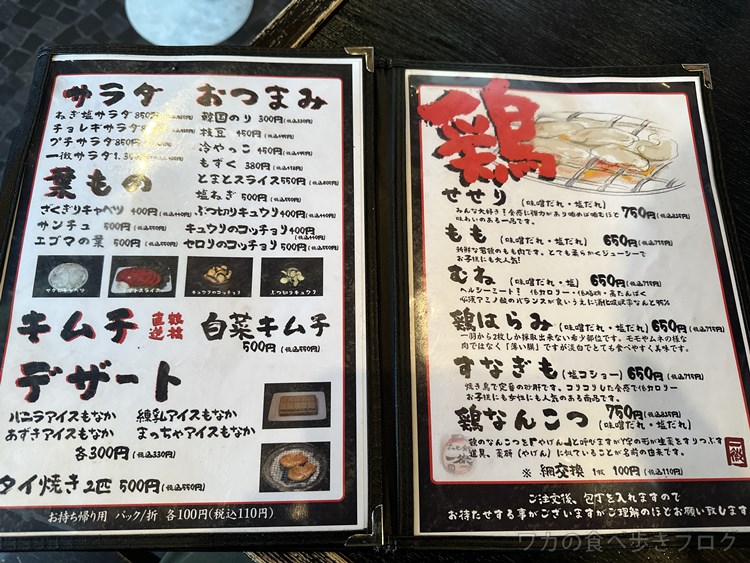 サラダ
ねぎ塩サラダ850円
チョレギサラダ
プチサラダ
一徹サラダ
おつまみ
韓国のり 300円(税込330円)
枝豆 450円(税込495円)
冷やっこ 450円(税込495円)
もずく 380円(税込418円)
とまとスライス550円
塩ねぎ 500円(税込550円)
葉もの
ざくぎりキャベツ 400円(税込440円)
サンチュ 500円(税込550円)
エゴマの葉 500円(税込550円)
ぶつ切りキュウリ400円(税込440円)
キュウリのコッチョリ400円(税込440円)
セロリのコッチョリ 500円(税込550円)
キムチ
直送
白菜キムチ
500円(税込550円)
デザート
バニラアイスもなか 練乳アイスもなか
あずきアイスもなか まっちゃアイスもなか
各300円(税込330円)
タイ焼き2匹 500円(税込550円)
お持ち帰り用 パック/折 各100円(税込110円)
鶏
せせり (味噌だれ・塩だれ) 750円(税込825円)
みんな大好き!食感に弾力があり噛めば噛むほど
味わいのある一品です。
もも (味噌だれ・塩だれ) 650円(税込715円)
新鮮な若鶏のもも肉です。とても柔らかくジューシーで
お子様にも大人気!
むね (味噌だれ・塩だれ) 650円(税込715円)
ヘルシーミート!低カロリー・低脂肪・高たんぱく
必須アミノ酸のバランスが良いうえに消化吸収率なんと
鶏はらみ(味噌だれ・塩だれ)650円(税込715円)
一羽から2枚しか採取出来ない希少部位です。モモやムネの様な
肉ではなく「薄い膜」ですが淡白でとても食べやすく美味です。
すなぎも(塩コショー)650円(税込715円)
焼き鳥で定番の砂肝です。コリコリした食感で低カロリー
お子様にも女性にも人気のある商品です。
鶏なんこつ 750円(税込825円)
(味噌だれ・塩だれ)
胸のなんこつを「やげん」と呼びますが
道具、薬研(やげん)に似ていることが名前の由来です。
※ 網交換 1枚 100円(税込110円)
一徹
ご注文後、包丁を入れますので
お待たせする事がございますがご理解のほどお願い致します
ワカの食べ歩きブログ